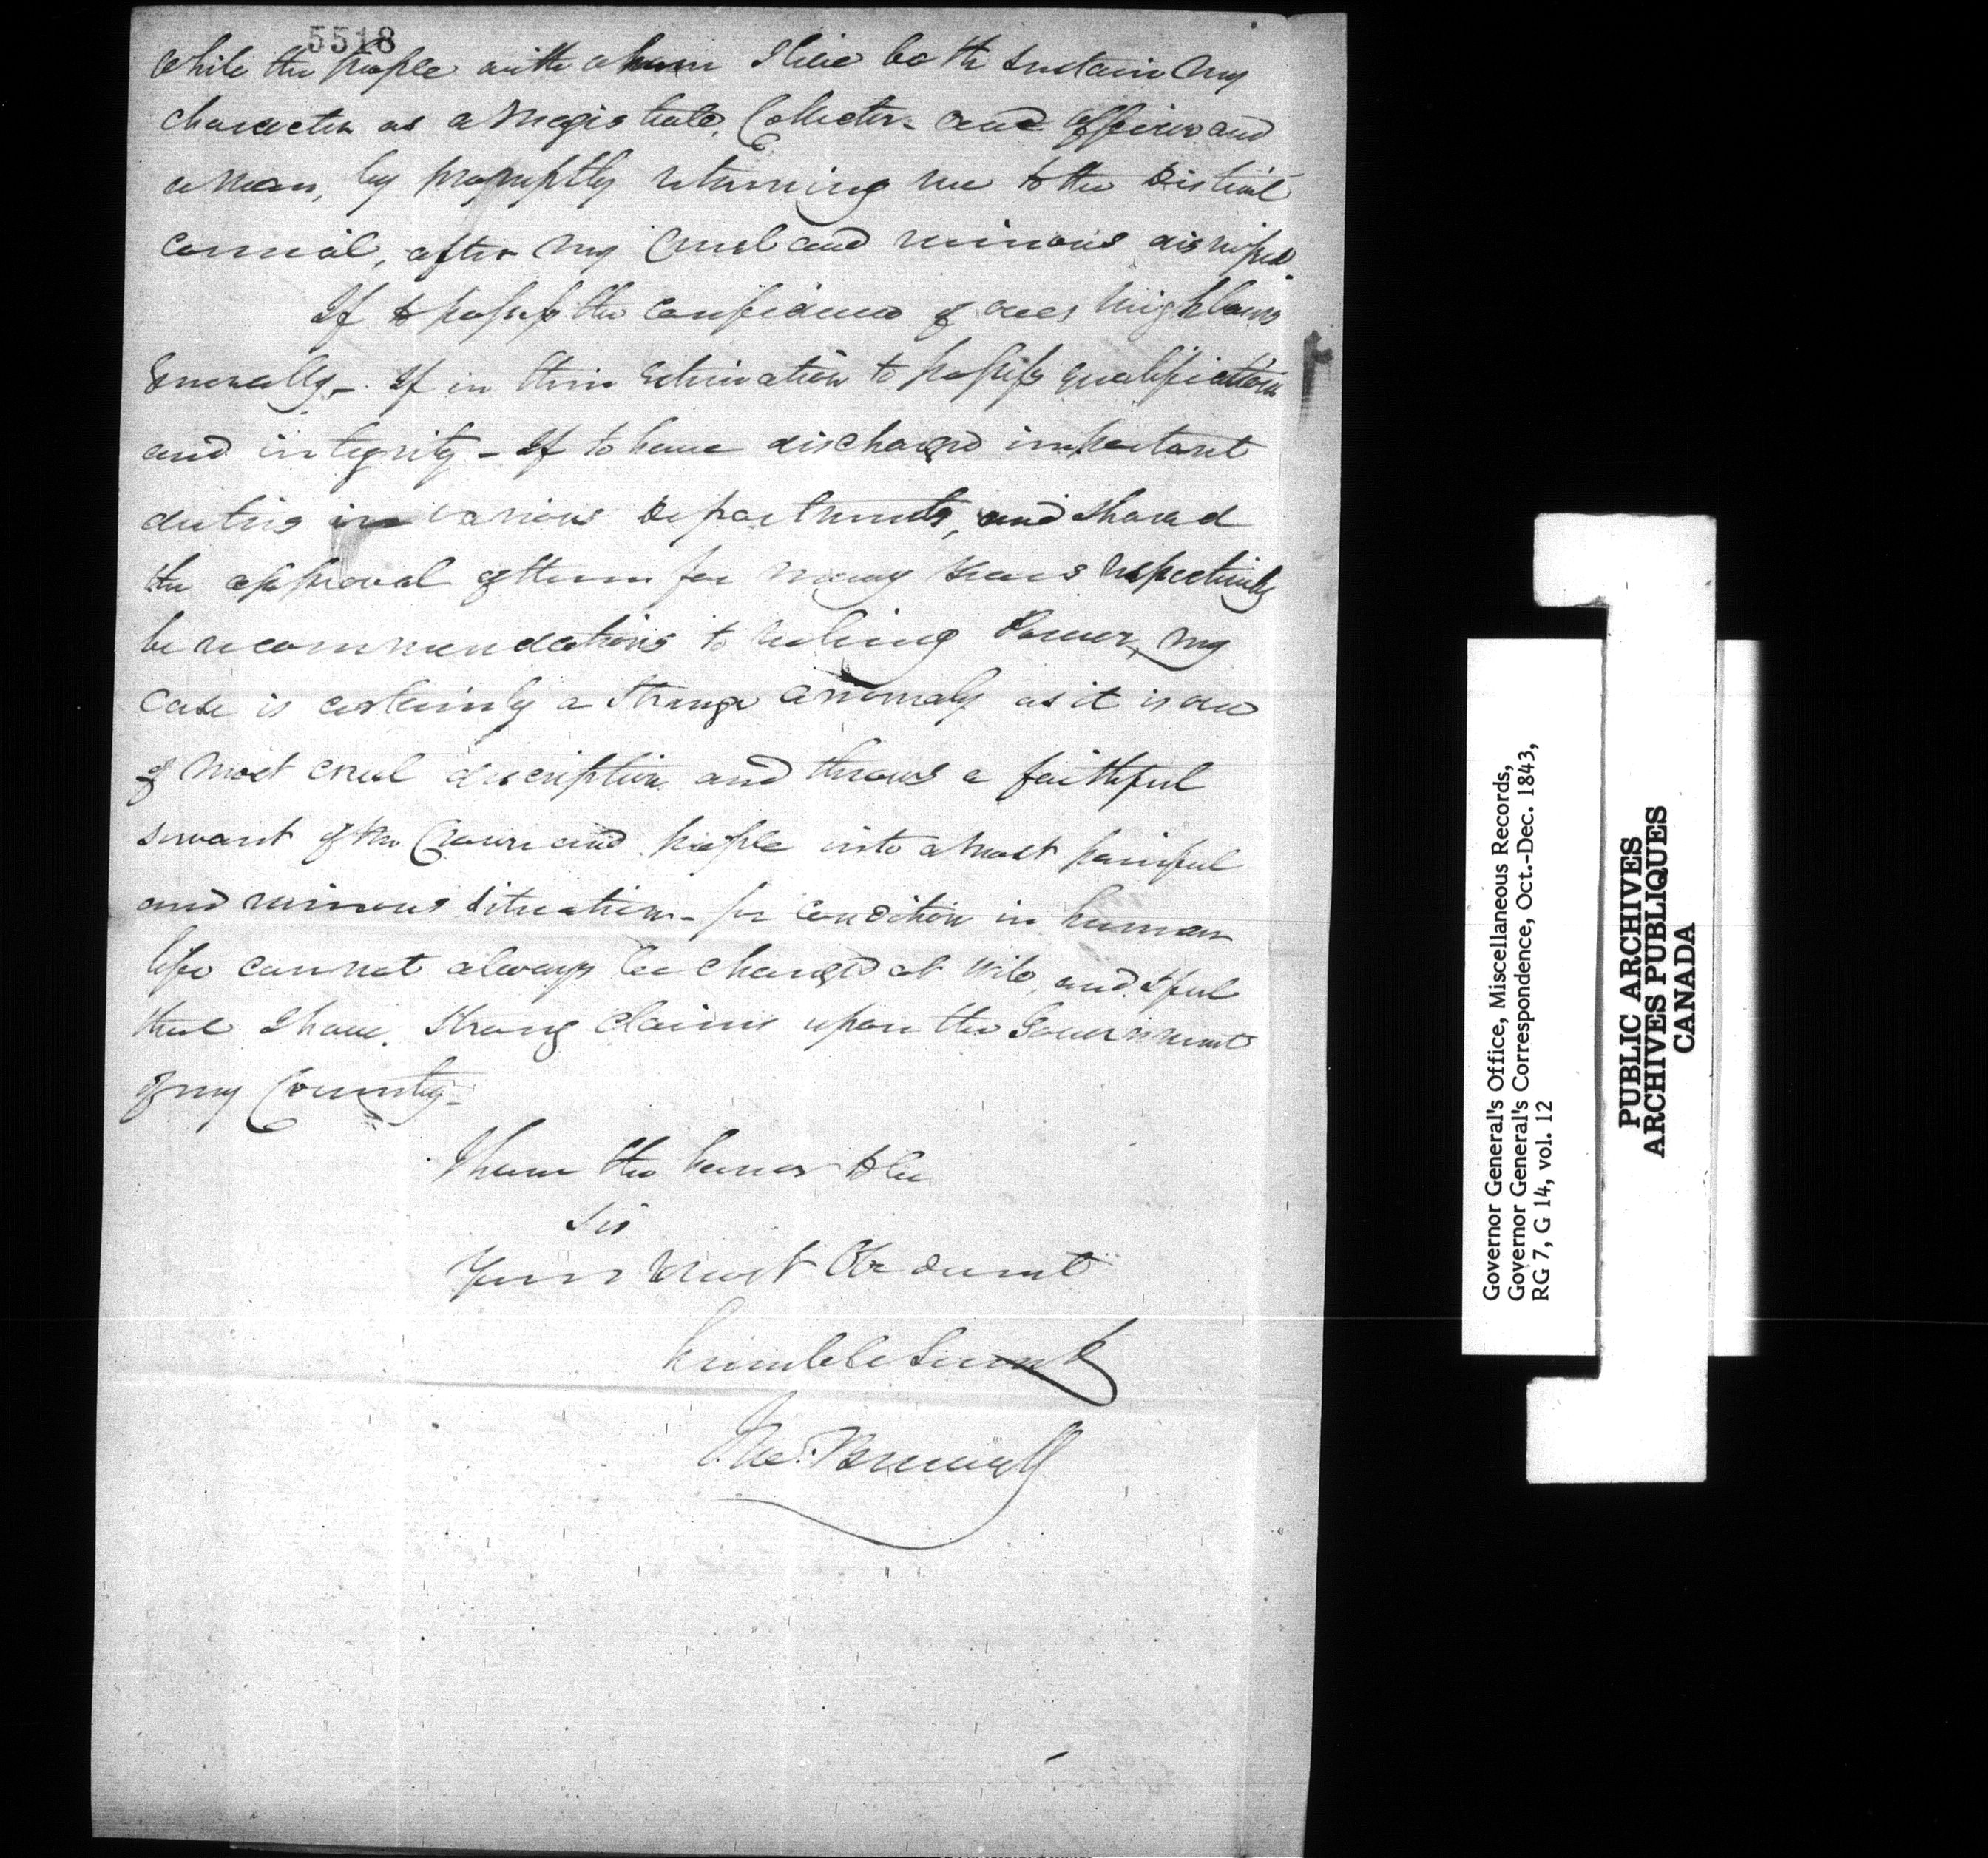 5518
while the people with whom I live both sustain my
character as a Magistrate, Collector and officer and
a man, by promptly returning me to the District
Council, after my cruel and ruinous dismissal.
If to possess the confidence of ones neighbours
Generally - If in their estimation to possess qualification
and integrity - If to have discharged important
duties in various Departments, and shared
the approval of them for many years respectively
be recommendations to ruling Power, my
case is certainly a strange anomaly as it is one
of most cruel description and throws a faithful
servant of the Crown and people into a most painful
and ruinous situation - for condition in human
life cannot always be changed at will, and I feel
that I have strong claims upon the Government
of my Country -
I have the honor to be
Sir
Your most Obedient
humble Servant
Governor General's Office, Miscellaneous Records,
Governor General's Correspondence, Oct.-Dec. 1843,
RG 7, G 14, vol. 12
PUBLIC ARCHIVES
ARCHIVES PUBLIQUES
CANADA